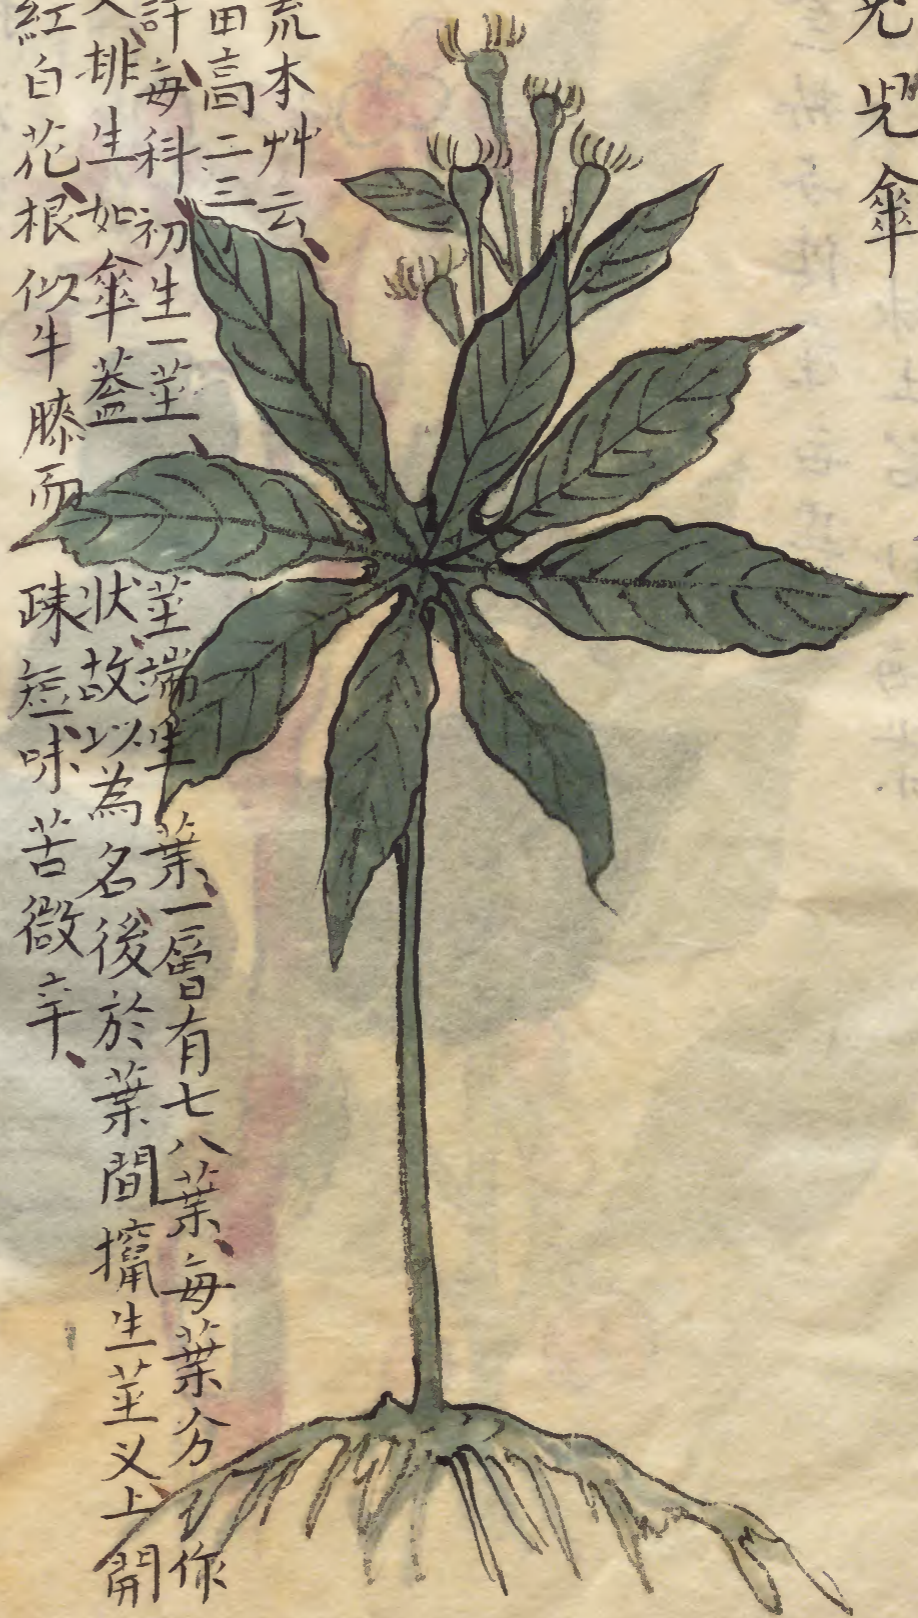 兕兕傘
荒本艸云
田高二三
許每科初生一莖莖端生葉一層有七八葉每葉分作
叉排生如傘蓋狀故以為名後於葉間攛生莖叉上開
紅白花根似牛膝而踈短味苦微辛